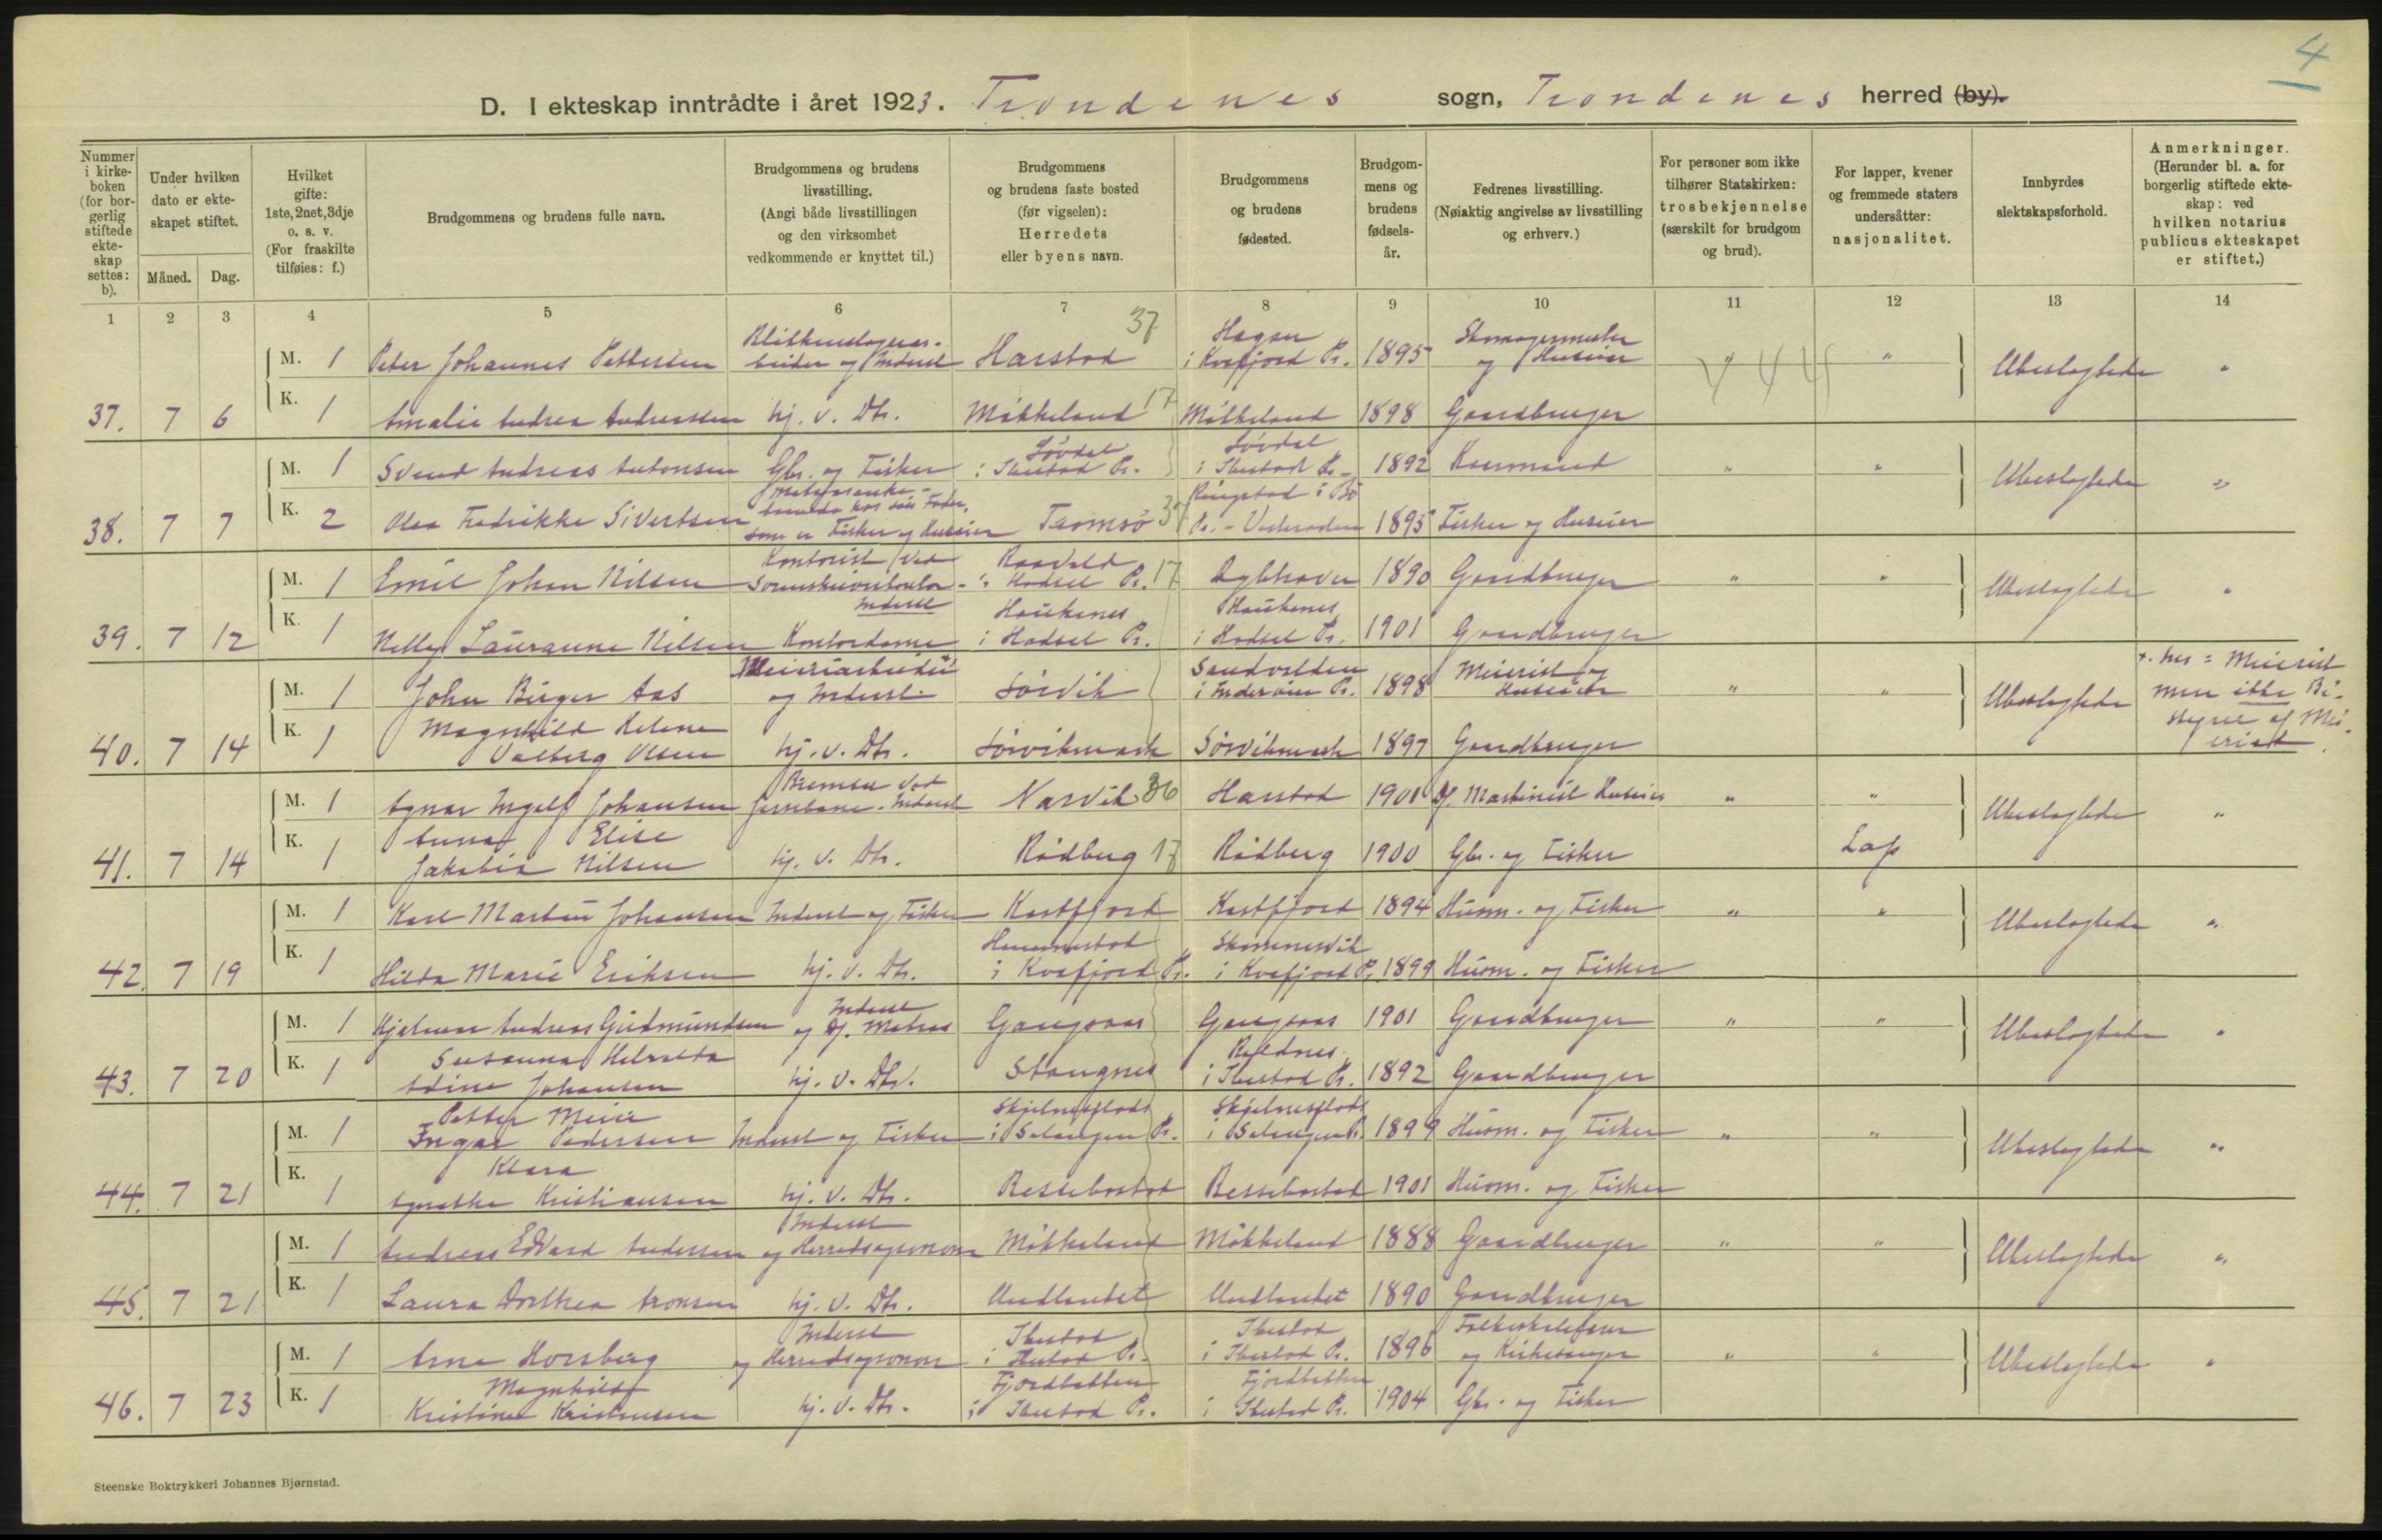 4
D. I ekteskap inntrådte i året 1923. Trondenes sogn, Trondenes herred (by).
Nummer i kirkeboken (for borgerlig stiftede ekteskap settes: b).
Under hvilken dato er ekteskapet stiftet.
Måned. Dag.
Hvilket gifte: 1ste, 2net, 3dje o. s. v. (For fraskilte tilføies: f.)
Brudgommens og brudens fulle navn.
Brudgommens og brudens livsstilling. (Angi både livsstillingen og den virksomhet vedkommende er knyttet til.)
Brudgommens og brudens faste bosted (før vigselen): Herredets eller byens navn.
Brudgommens og brudens fødested.
Brudgommens og brudens fødselsår.
Fedrenes livsstilling. (Nøiaktig angivelse av livsstilling og erhverv.)
For personer som ikke tilhører Statskirken: trosbekjennelse (særskilt for brudgom og brud).
For lapper, kvener og fremmede staters undersåtter: nasjonalitet.
Innbyrdes slektskapsforhold.
Anmerkninger. (Herunder bl. a. for borgerlig stiftede ekteskap: ved hvilken notarius publicus ekteskapet er stiftet.)
1 2 3 4 5 6 7 8 9 10 11 12 13 14
37
M. 1 Peter Johannes Pettersen og Inderst Harstad Hagan i Kvæfjord Pr. 1895 Skomagermester og Huseier " " Ubeslegtede "
37. 7 6 K. 1 Amalie Andrea Andreassen hj. v. Dtr. Møkkeland 17 Møkkeland 1898 Gaardbruger
M. 1 Svend Andreas Antonsen Gbr. og Fisker Løvdal i Ibestad Pr. Løvdal i Ibestad Pr. 1892 " " Ubeslegtede "
38. 7 7 K. 2 Olea Fredrikke Sivertsen hos sin Fader, som er Fisker og Huseier Tromsø Ringstad i Bø Pr. - Vesteraalen 1895 Fisker og Huseier
M. 1 Emil Johan Nilsen Kontorist ved Sorenskriverkontor - Inderst i Hadsel Pr. 17 1890 Gaardbruger " " Ubeslegtede "
39. 7 12 K. 1 Nelly Lauranne Nilsen Kontordame Haukenes i Hadsel Pr. Haukenes i Hadsel Pr. 1901 Gaardbruger
M. 1 John Birger Aas Meieriarbeider og Inderst Sørvik Sandvollan i Inderøen Pr. 1898 Meierist og Huseier " " Ubeslegtede
+. her = Meierist
men ikke Be-
styrer af Mei-
eriet.
40. 7 14 K. 1 Magnhild Helene Valborg Olsen hj. v. Dtr. Sørvikmark Sørvikmark 1897 Gaardbruger
M. 1 Agnar Ingolf Johansen Bremser ved Jernbane. Inderst Narvik 36 Harstad 1901 Df. Maskinist Huseier " " Ubeslegtede "
41. 7 14 K. 1 Anna Elise Jakobia Nilsen hj. v. Dtr. Rødberg 17 Rødberg 1900 Gbr. og Fisker Lap
M. 1 Karl Martin Johansen Inderst og Fisker Kastfjord Kastfjord 1894 Husm. og Fisker " " Ubeslegtede "
42. 7 19 K. 1 Hilda Marie Eriksen hj. v. Dtr. i Kvæfjord Pr. i Kvæfjord Pr. 1899 Husm. og Fisker
M. 1 Hjalmar Andreas Gudmundsen Inderst og Df. Matros Gangsaas Gangsaas 1901 Gaardbruger " " Ubeslegtede "
43. 7 20 K. 1 Susanna Helselda Adine Johansen hj. v. Dtr. Stangnes Rollnes i Ibestad Pr. 1892 Gaardbruger
M. 1 Petter Meier Ingar Pedersen Inderst og Fisker i Salangen Pr. i Salangen Pr. 1899 Husm. og Fisker " " Ubeslegtede "
44. 7 21 K. 1 Klara Agnethe Kristiansen hj. v. Dtr. Bessebostad Bessebostad 1901 Husm. og Fisker
M. 1 Andreas Edvard Andersen Inderst og Herredsagronom Møkkeland Møkkeland 1888 Gaardbruger " " Ubeslegtede "
45. 7 21 K. 1 Laura Dorthea Aronsen hj. v. Dtr. Undlandet Undlandet 1890 Gaardbruger
M. 1 Arne Horsberg Inderst og Herredsagronom Ibestad i Ibestad Pr. Ibestad i Ibestad Pr. 1896 Folkeskolelærer og Kirkesanger " " Ubeslegtede "
46. 7 23 K. 1 Magnhild Kristine Kristensen hj. v. Dtr. Fjordbotten i Ibestad Pr. Fjordbotten i Ibestad Pr. 1904 Gbr. og Fisker
Steenske Boktrykkeri Johannes Bjørnstad.